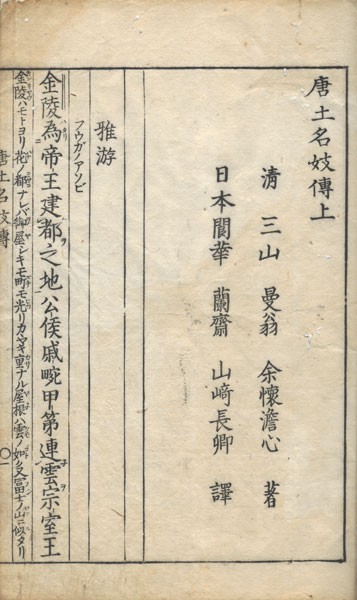 唐土名妓傳上
清 三山 曼翁 余懷澹心 著
日本 閬華 蘭齋 山﨑長卿 譯
雅游
フウガノアソビ
金陵為帝王建都之地公侯戚畹甲第連雲宗室王
金陵ハモトヨリ花ノ都ナレバ御屋シキモ町モ光リカヾヤキ重ナル屋根ハ雲ノ如ク又富士ノ山ニ似タリ
唐土名妓傳
一